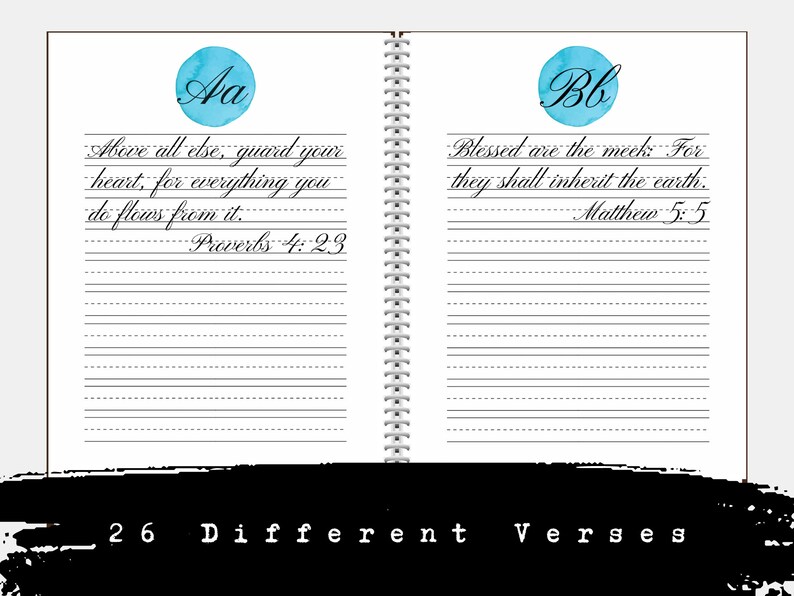 Aa
Above all else, guard your
heart, for everything you
do flows from it.
Proverbs 4: 23
Bb
Blessed are the meek: For
they shall inherit the earth.
Matthew 5: 5
26 Different Verses